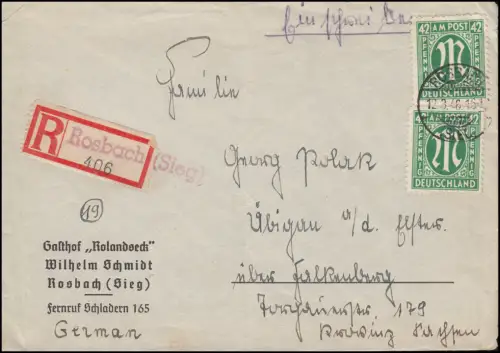 Einschreiben
42 AM POST 42
PFENNIG PFENNIG
M
DEUTSCHLAND
42 AM POST 42
PFENNIG PFENNIG
M
DEUTSCHLAND
Familie
R Rosbach (Sieg)
406
Georg Polak
19
Übigau a/d. Elster
Gasthof „Rolandseck"
Wilhelm Schmidt
Rosbach (Sieg)
über Falkenberg
Fernruf Schladern 165
Torgauerstr. 179
German
Provinz Sachsen